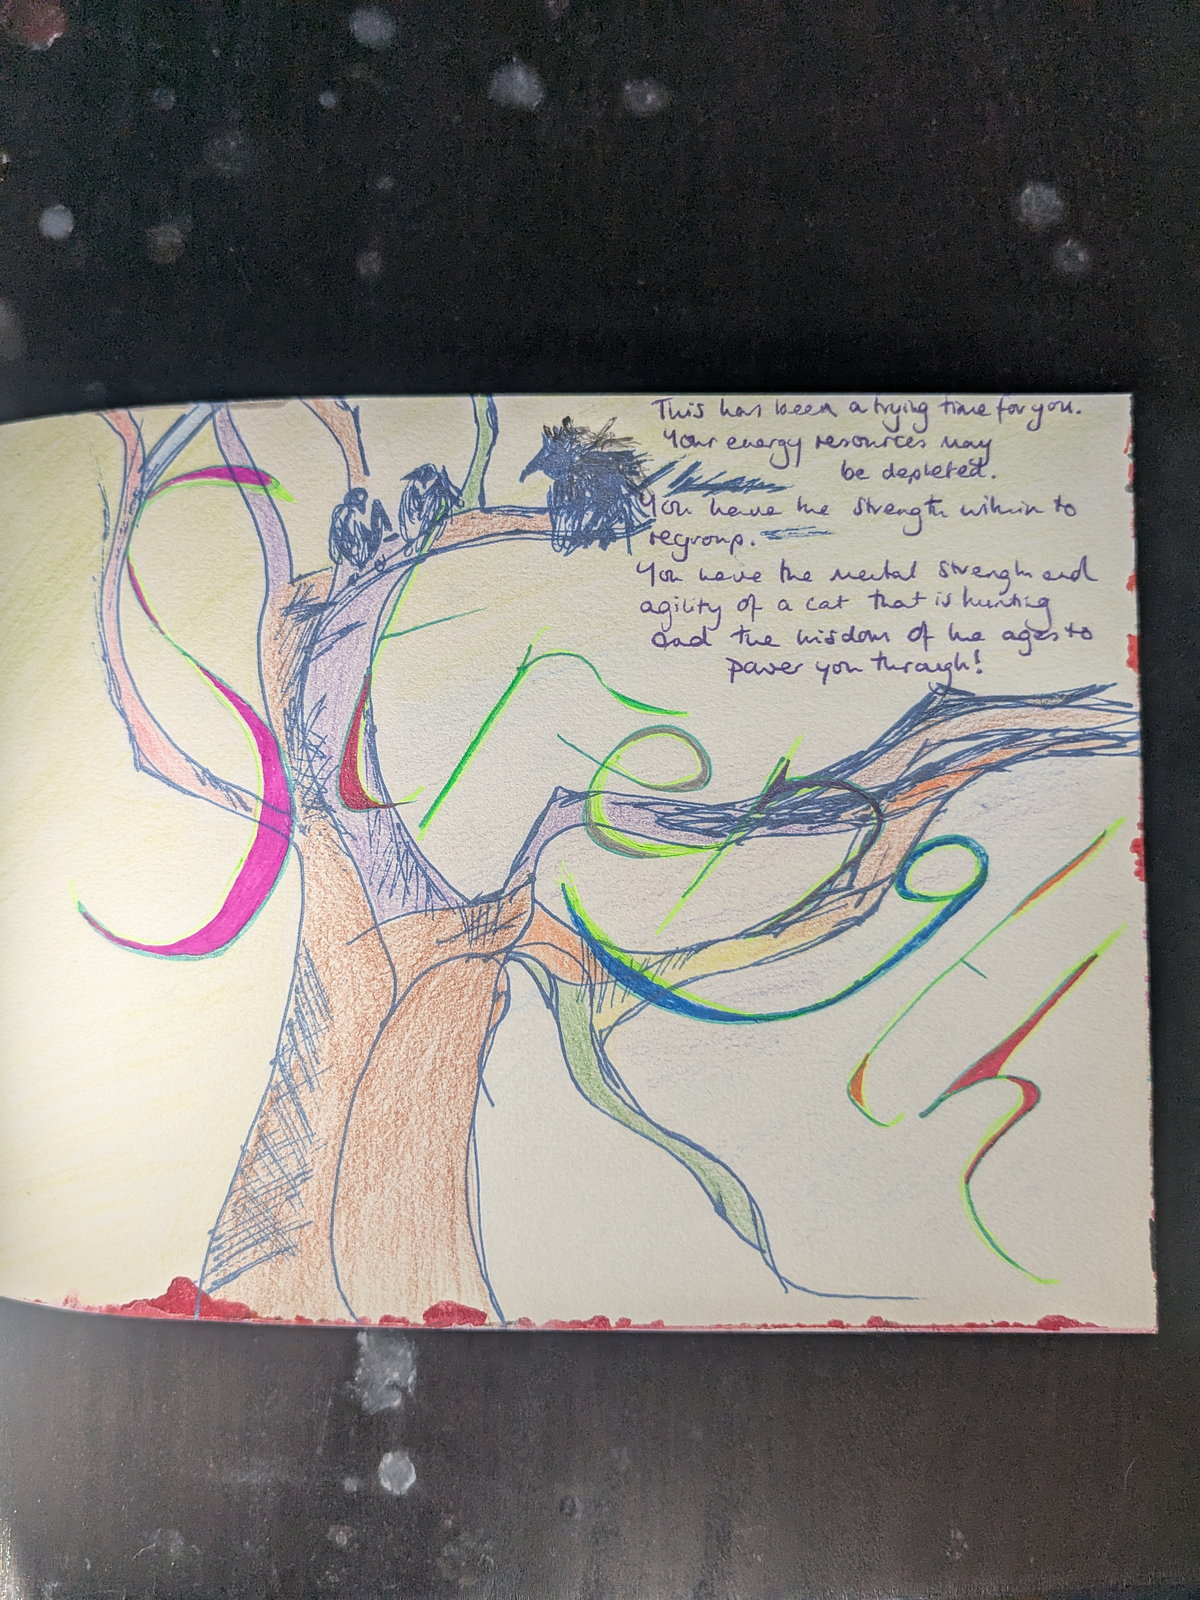 This has been a trying time for you.
Your energy resources may
be depleted.
You have the strength within to
regroup.
You have the mental strength and
agility of a cat that is hunting
and the wisdom of the ages to
power you through!
Strength